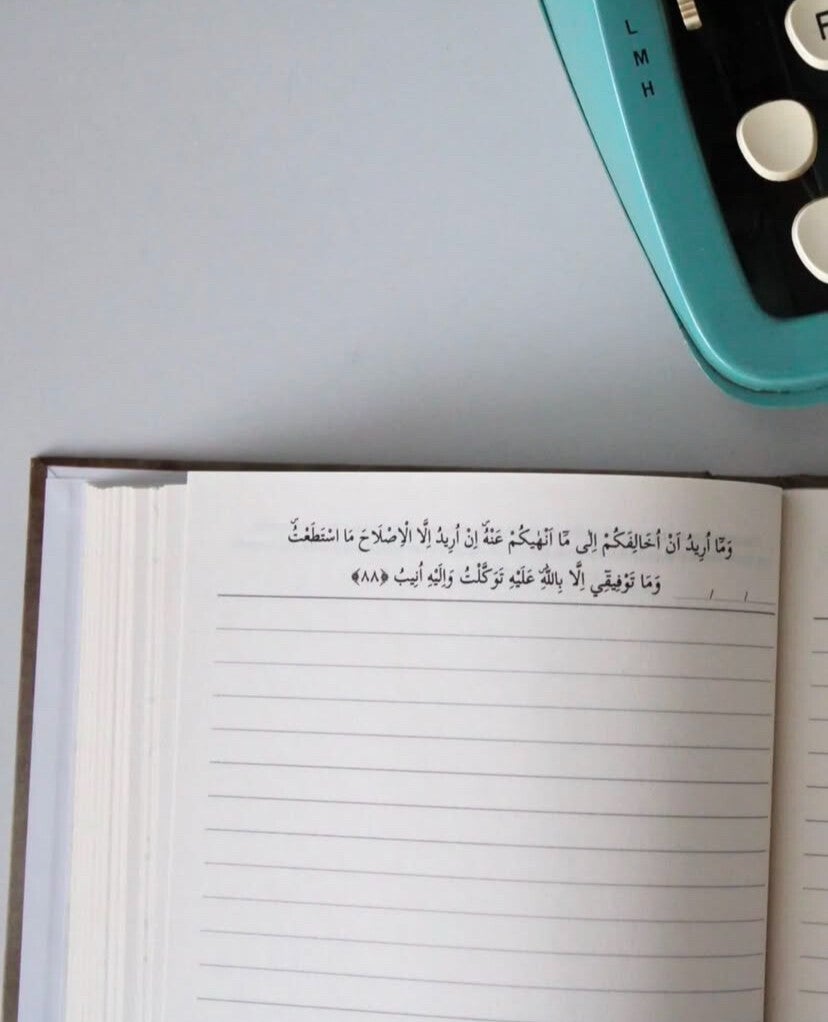 L
M
H
F
وَمَٓا اُر۪يدُ اَنْ اُخَالِفَكُمْ اِلٰى مَٓا اَنْهٰيكُمْ عَنْهُۜ اِنْ اُر۪يدُ اِلَّا الْاِصْلَاحَ مَا اسْتَطَعْتُۜ
وَمَا تَوْف۪يق۪ٓي اِلَّا بِاللّٰهِۜ عَلَيْهِ تَوَكَّلْتُ وَاِلَيْهِ اُن۪يبُ ﴿٨٨﴾
/ /